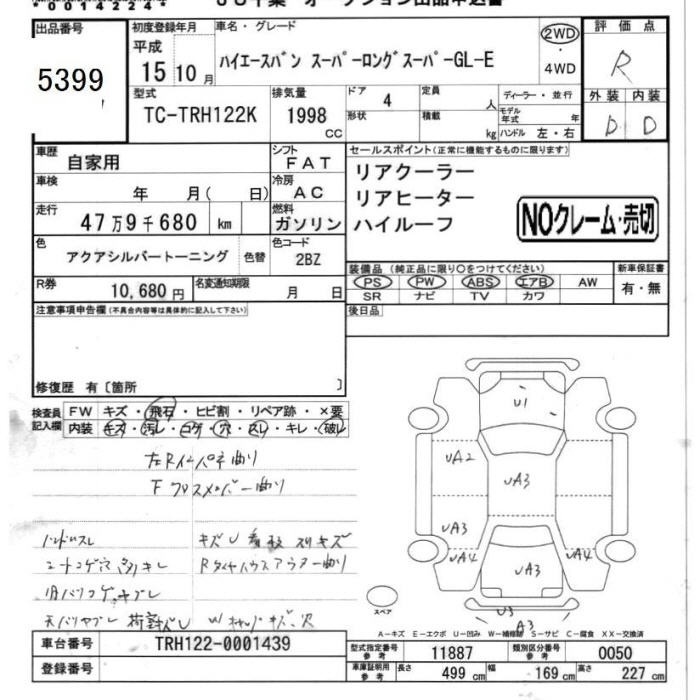 出品番号 初度登録年月 車名・グレード 評価点
5399 平成 15年10月 ハイエースバン スーパーロングスーパーGL-E 2WD ・ 4WD R
型式 排気量 ドア 定員 ディーラー・並行 外装 内装
TC-TRH122K 1998 CC 4 人 モデル年式 年 D D
形状 積載 kg ハンドル 左・右
車歴 自家用 シフト FAT セールスポイント(正常に機能するものに限ります)
車検 年 月( 日) 冷房 AC リアクーラー
走行 47万9千680 km 燃料 ガソリン リアヒーター
ハイルーフ NOクレーム・売切
色 アクアシルバートーニング 色替 色コード 2BZ
装備品(純正品に限り○をつけてください) 新車保証書
PS PW ABS エアB AW 有・無
SR ナビ TV カワ
R券 10,680円 名変通知期限 月 日
注意事項申告欄(不具合内容等は具体的に記入して下さい) 後日品
修復歴 有〔箇所 〕
検査員記入欄 FW キズ・飛石・ヒビ割・リペア跡・×要
内装 キズ・汚レ・コゲ・穴・スレ・キレ・破レ
左Rインパネ曲り
Fクロスメンバー曲り
ハンドルスレ キズU 看板
U1
UA2
UA3
UA3
UA4
UA4
UA3
U3
A3
スペア
A-キズ E-エクボ U-凹み W-補修跡 S-サビ C-腐食 XX-交換済
車台番号 TRH122-0001439
型式指定番号 参考 11887 類別区分番号 参考 0050
登録番号
車庫証明用 参考 長さ 499 cm 幅 169 cm 高さ 227 cm